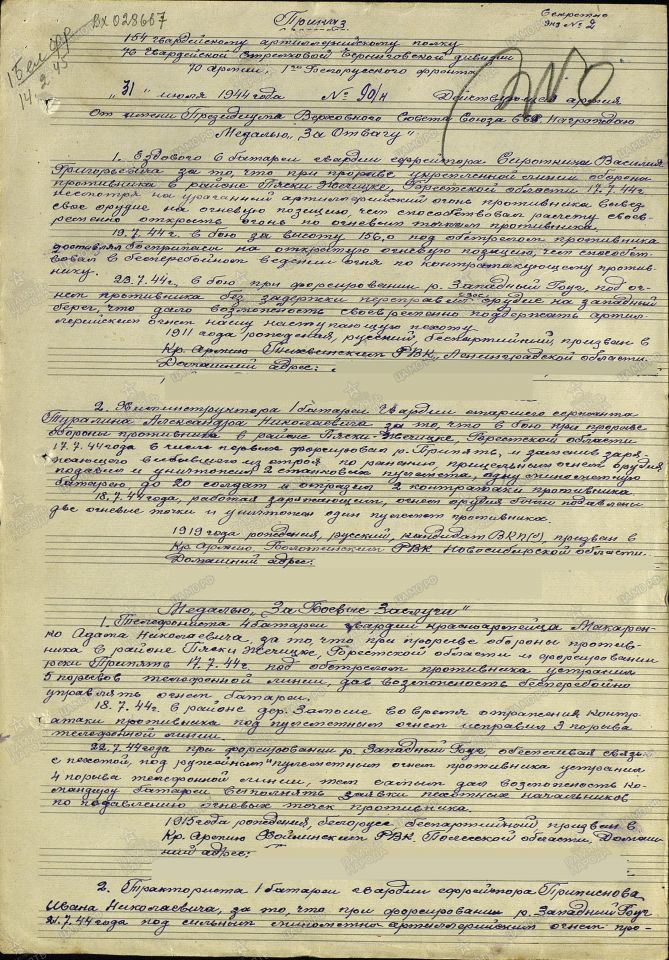 Вх 028667
Приказ
Секретно
экз № 2
154 гвардейскому артиллерийскому полку
76 Гвардейской Стрелковой Черниговской дивизии
70 армии, 1го Белорусского фронта
14.2.45
"31" июля 1944 года № 90/н Действующая армия
От имени Президиума Верховного Совета Союза ССР Награждаю
Медалью "За Отвагу"
1. Ездового 6 батареи гвардии ефрейтора Сироткина Василия
Григорьевича за то, что при прорыве укрепленной линии обороны
противника в районе Пяски Жечицке, Брестской области 17.7.44г.
несмотря на ураганный артиллерийский огонь противника вывез
свое орудие на огневую позицию, чем способствовал расчету свое-
ременно открыть огонь по огневым точкам противника.
19.7.44г. в бою за высоту 156,0 под обстрелом противника
доставлял боеприпасы на открытую огневую позицию, чем способст-
вовал в бесперебойном ведении огня по контратакующему против-
нику.
23.7.44г., в бою при форсировании р. Западный Буг, под ог-
нем противника без задержки переправил свое орудие на западный
берег, что дало возможность своевременно поддержать артил-
лерийским огнем нашу наступающую пехоту.
1911 года рождения, русский, беспартийный, призван в
Кр. Армию Тихвинским РВК Ленинградской области.
Домашний адрес:
2. Химинструктора 1 батареи гвардии старшего сержанта
Туралина Александра Николаевича за то, что в бою при прорыве
обороны противника в районе Пяски-Жечицке, Брестской области
17.7.44 года в числе первых форсировал р. Припять, и заменив заря-
жающего выбывшего из строя по ранению, прицельным огнем орудия
подавил и уничтожил 2 станковых пулемета, одну минометную
батарею, до 20 солдат и отразил 2 контратаки противника.
18.7.44 года, работая заряжающим, огнем орудия были подавлены
две огневые точки и уничтожен один пулемет противника.
1919 года рождения, русский, кандидат ВКП(б), призван в
Кр. Армию Болотнинским РВК Новосибирской области.
Домашний адрес:
Медалью "За Боевые Заслуги"
1. Телефониста 4 батареи гвардии красноармейца Макарен-
ко Адама Николаевича, за то, что при прорыве обороны против-
ника в районе Пяски Жечицке, Брестской области и форсировании
реки Припять 17.7.44г. под обстрелом противника устранил
5 порывов телефонной линии, дав возможность бесперебойно
управлять огнем батареи.
18.7.44г. в районе дер. Замшие во время отражения контр-
атаки противника под пулеметным огнем исправил 3 порыва
телефонной линии.
22.7.44 года при форсировании р. Западный Буг, обеспечивая связь
с пехотой, под ружейно-пулеметным огнем противника устранил
4 порыва телефонной линии, тем самым дал возможность ко-
мандиру батареи выполнять заявки пехотных начальников
по подавлению огневых точек противника.
1915 года рождения, белорус, беспартийный, призван в
Кр. Армию РВК Полесской области, Домаш-
ний адрес:
2. Тракториста 1 батареи гвардии ефрейтора Приписнова
Ивана Николаевича, за то, что при форсировании р. Западный Буг
21.7.44 года под сильным минометно-артиллерийским огнем про-